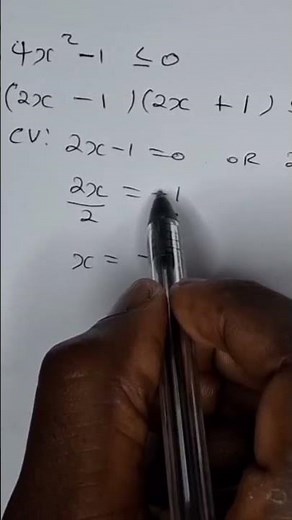 4x² - 1 ≤ 0
(2x - 1)(2x + 1)
CV: 2x - 1 = 0 OR 2
2x/2 = 1
x = -